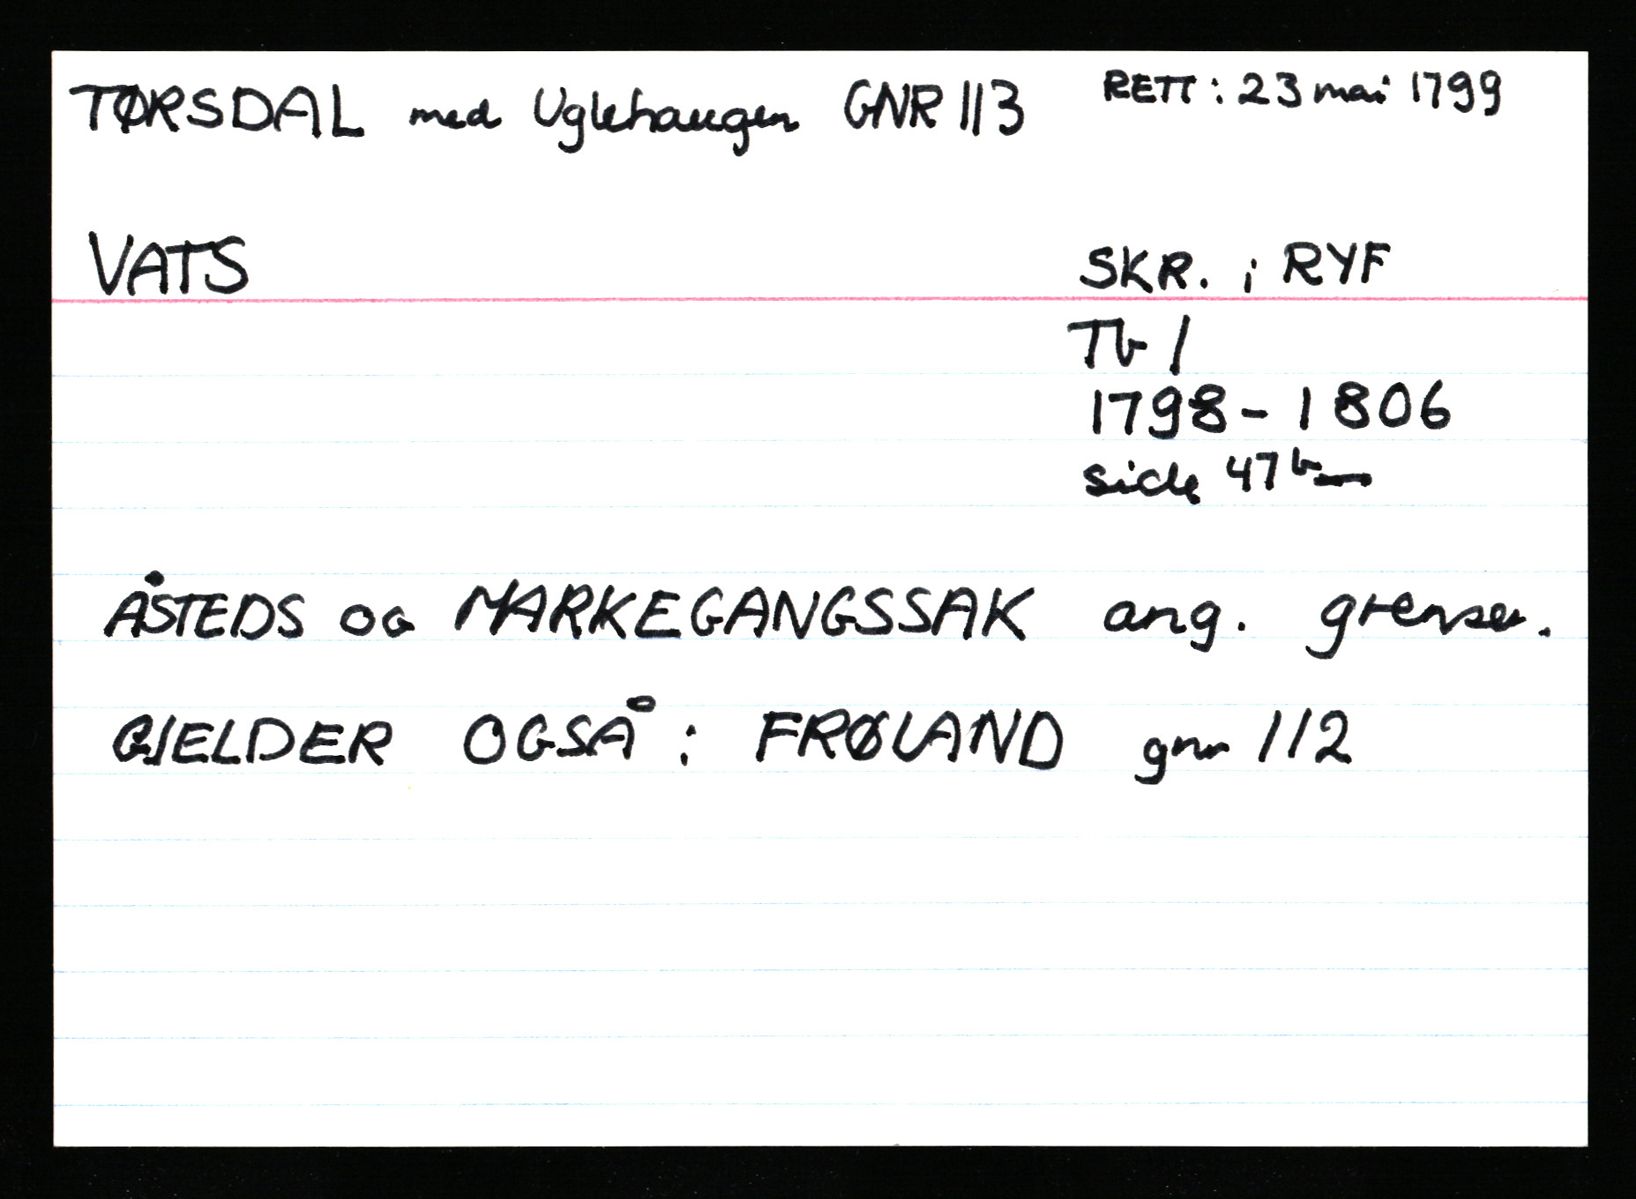 TØRSDAL med Uglehaugen GNR 113 RETT: 23 mai 1799
VATS SKR. i RYF
Tb /
1798-1806
side 47b—
ÅSTEDS OG MARKEGANGSSAK ang. grenser.
GJELDER OGSÅ: FRØLAND gnr 112